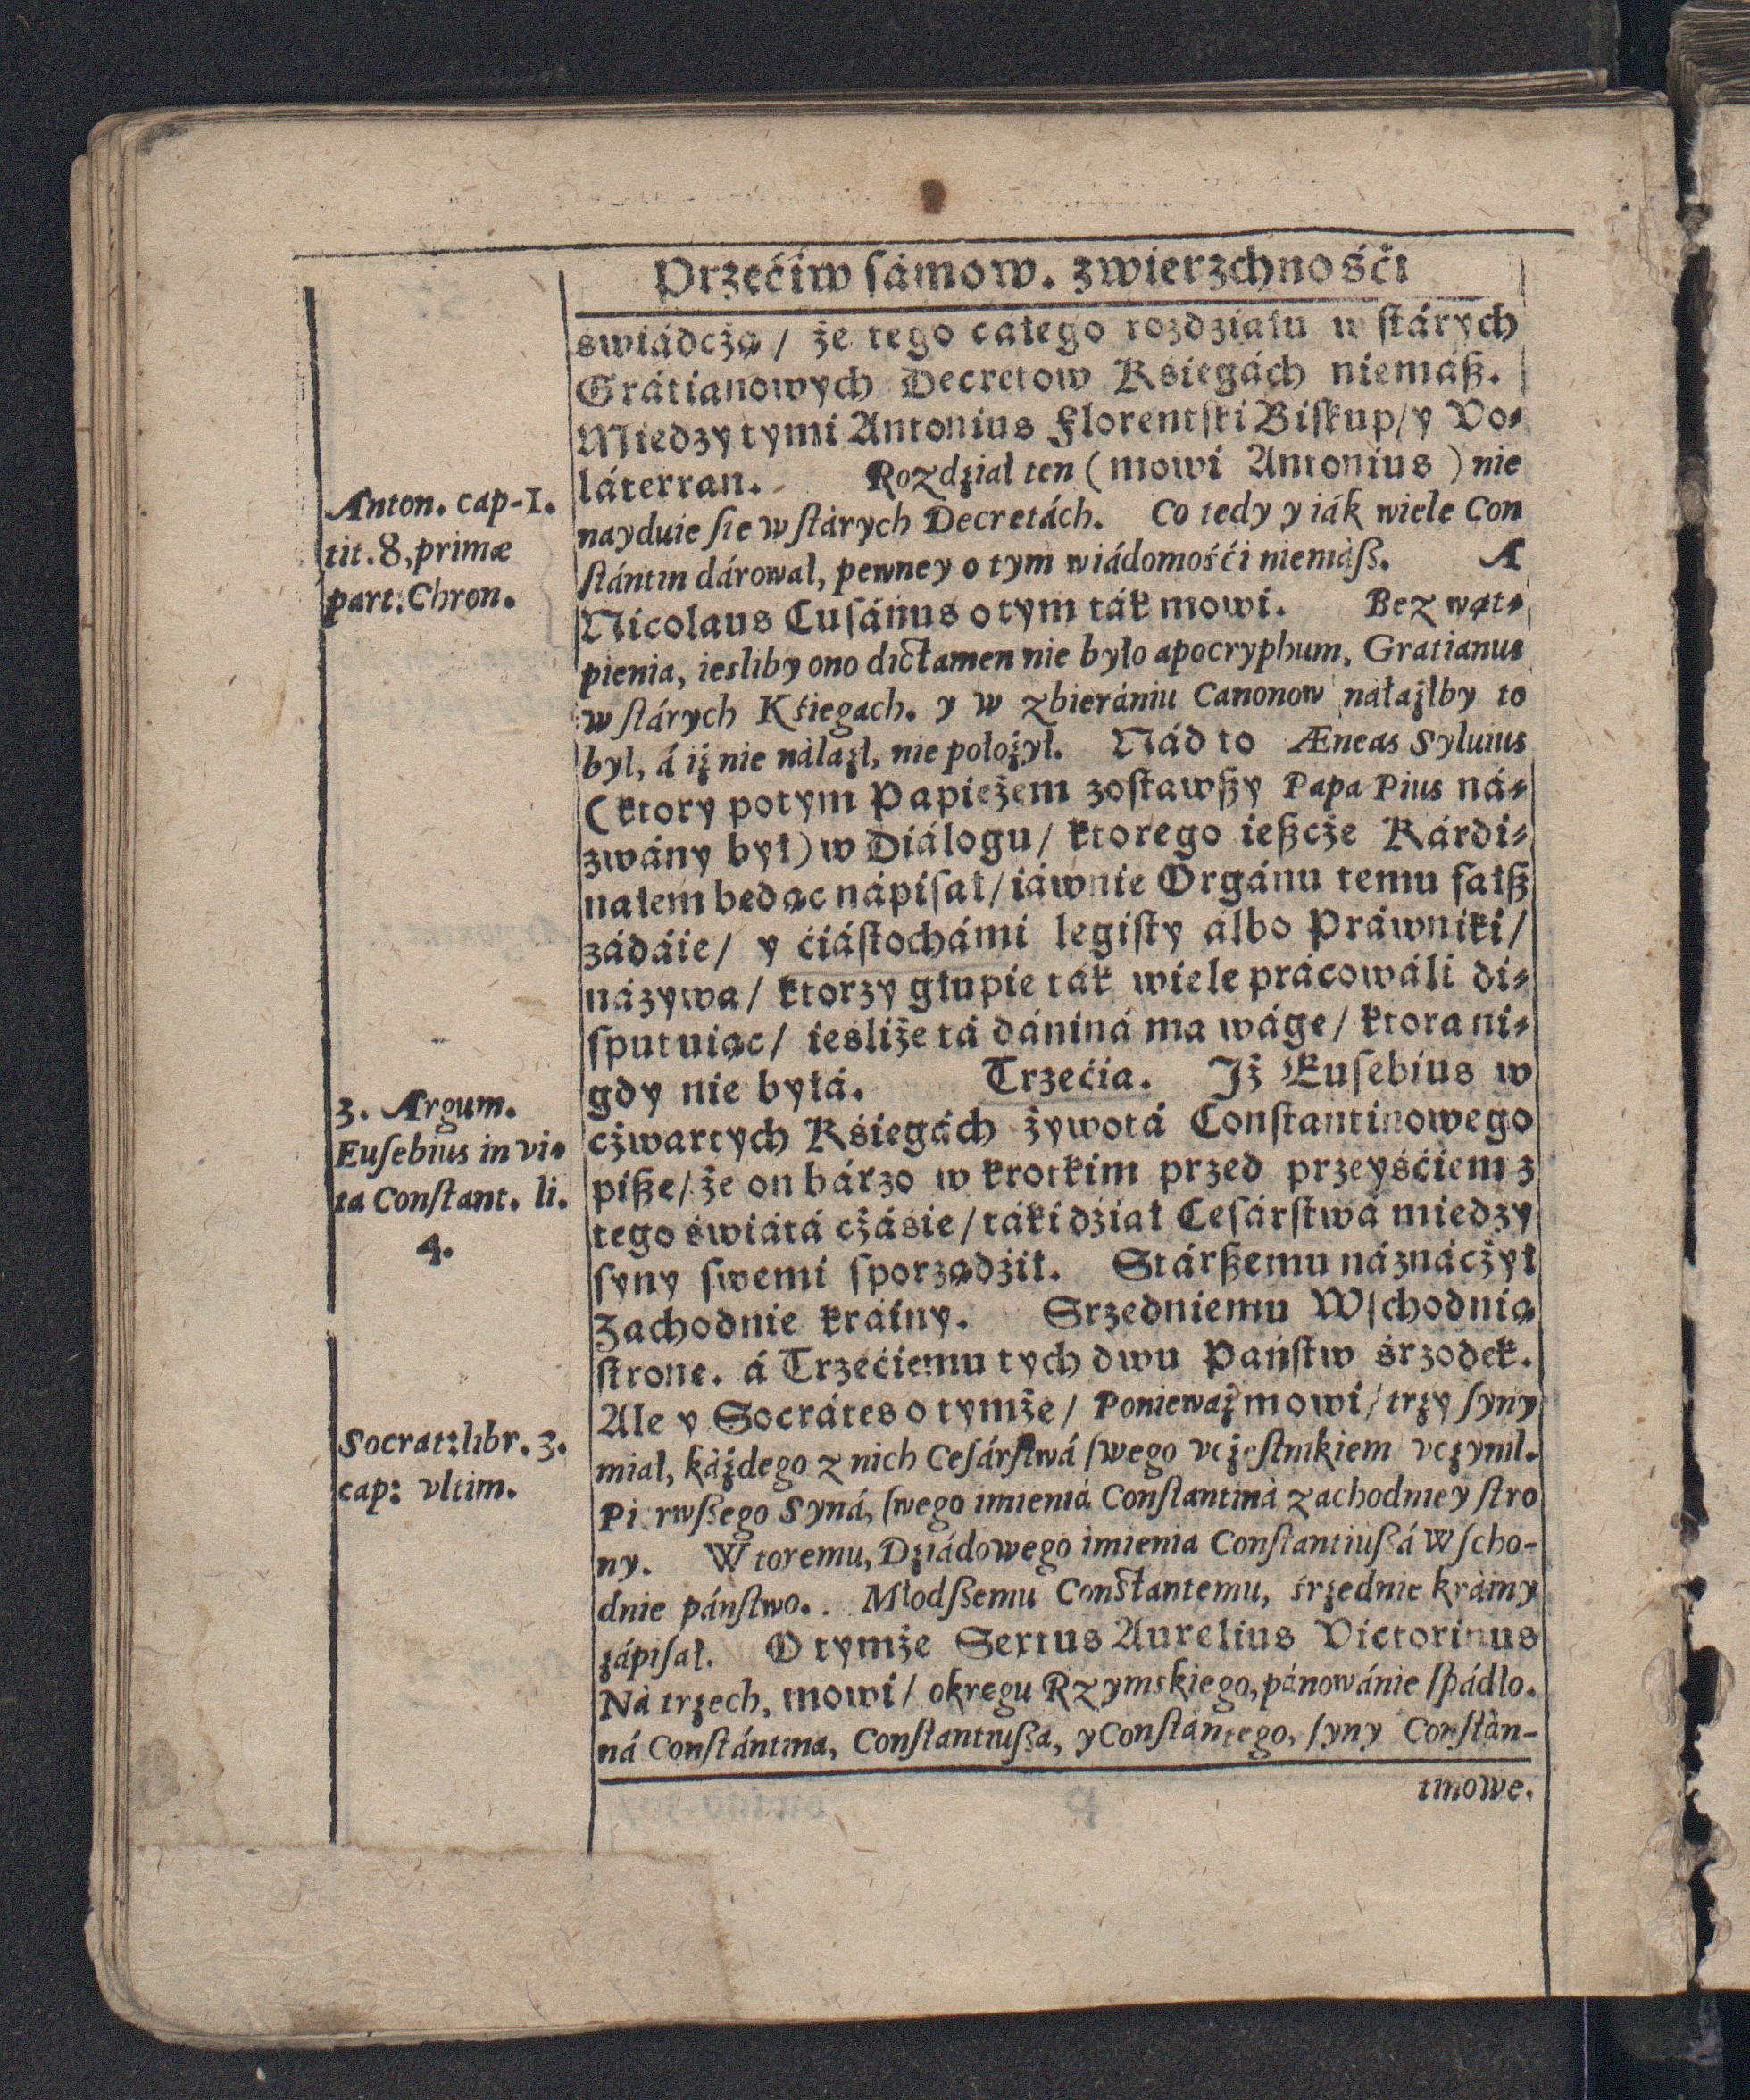 Przećiw ſámow. zwierzchnośći
swiádcżą / że tego całego rozdziału w ſtárych
Grátianowych Decretow Kśiegách niemáß.
Miedzy tymi Antonius Florentſki Biſkup / y Vo⸗
láterran. Rozdźiał ten (mowi Antonius) nie
Anton. cap-1.
tit. 8, primæ
part: Chron.
nayduie ſie w ſtárych Decretách. Co tedy y iák wiele Con
ſtántin dárował, pewney o tym wiádomośći niemáß. A
Nicolaus Cuſánus o tym ták mowi. Bez wąt⸗
pienia, iesliby ono dictamen nie było apocryphum, Gratianus
w ſtárych Kśiegach. y w zbierániu Canonow náłaźlby to
był, á iż nie nálazł, nie położył. Nád to Æneas Syluius
(ktory potym Papieżem zoſtawßy Papa Pius ná⸗
zwány był) w Diálogu / ktorego ießcże Kárdi⸗
nałem bedąc nápiſał / iáwnie Orgánu temu fałß
zádáie / y ćiáſtochámi legiſty álbo Práwniki /
názywa / ktorzy głupie ták wiele prácowáli di⸗
ſputuiąc / iesliże tá dániná ma wáge / ktora ni⸗
gdy nie byłá. Trzećia. Iż Euſebius w
3. Argum.
Euſebius in vi⸗
ta Conſtant. li.
4.
cżwartych Kśiegách żywotá Conſtantinowego
piße / że on bárzo w krotkim przed przeyśćiem z
tego świátá cżáśie / táki dźiał Ceſárſtwá miedzy
ſyny ſwemi ſporządźił. Stárßemu náznácżył
Zachodnie kráiny. Srzedniemu Wſchodnią
ſtrone. á Trzećiemu tych dwu Pańſtw śrzodek.
Ale y Socrátes o tymże / Ponieważ mowi / trzy ſyny
Socrat: libr. 3.
cap: vltim.
miał, káżdego z nich Ceſárſtwá ſwego vcżeſtnikiem vcżynił.
Pierwßego Syná, ſwego imieniá Conſtantiná zachodniey ſtro
ny. Wtoremu, Dźiádowego imienia Conſtantiußá Wſcho-
dnie páńſtwo. Młodßemu Conſtantemu, śrzednie kráiny
zápiſał. O tymże Sextus Aurelius Victorinus
Ná trzech, mowi / okregu Rzymskiego, pánowánie ſpádło.
ná Conſtántina, Conſtantiußa, y Conſtántego, ſyny Conſtán-
tinowe.